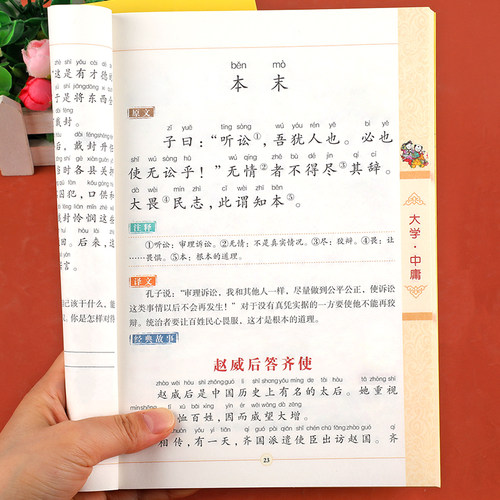 běn mò
本 末
原文
zǐ yuē tīng sòng wú yóu rén yě bì yě
子曰：“听讼①，吾犹人也。必也
shǐ wú sòng hū wú qíng zhě bù dé jìn qí cí
使无讼乎！”无情②者不得尽③其辞。
dà wèi mín zhì cǐ wèi zhī běn
大畏④民志，此谓知本⑤。
注释
①听讼：审理诉讼。②无情：不是真实情况。③尽：狡辩。④畏：让
……畏惧。⑤本：根本的道理。
译文
孔子说：“审理诉讼，我和其他人一样，尽量做到公平公正，使诉讼
这类事情以后不会再发生！”对于没有真凭实据的一方要使他不能再狡
辩。统治者要让百姓民心畏服，这才是根本的道理。
经典故事
赵威后答齐使
zhào wēi hòu shì zhōng guó lì shǐ shang yǒu míng de tài hòu tā zhòng shì
赵威后是中国历史上有名的太后。她重视
恤百姓，因而威望大增。
相传，有一天，齐国派遣使臣出访赵国。齐
23
大学·中庸
这是有才德
于是将东西全
戴封。
戴封升任
给各县吏
囚犯，口供
戴封怜悯这些
后来，这
言。
记该干什么，能
，你是怎样对待